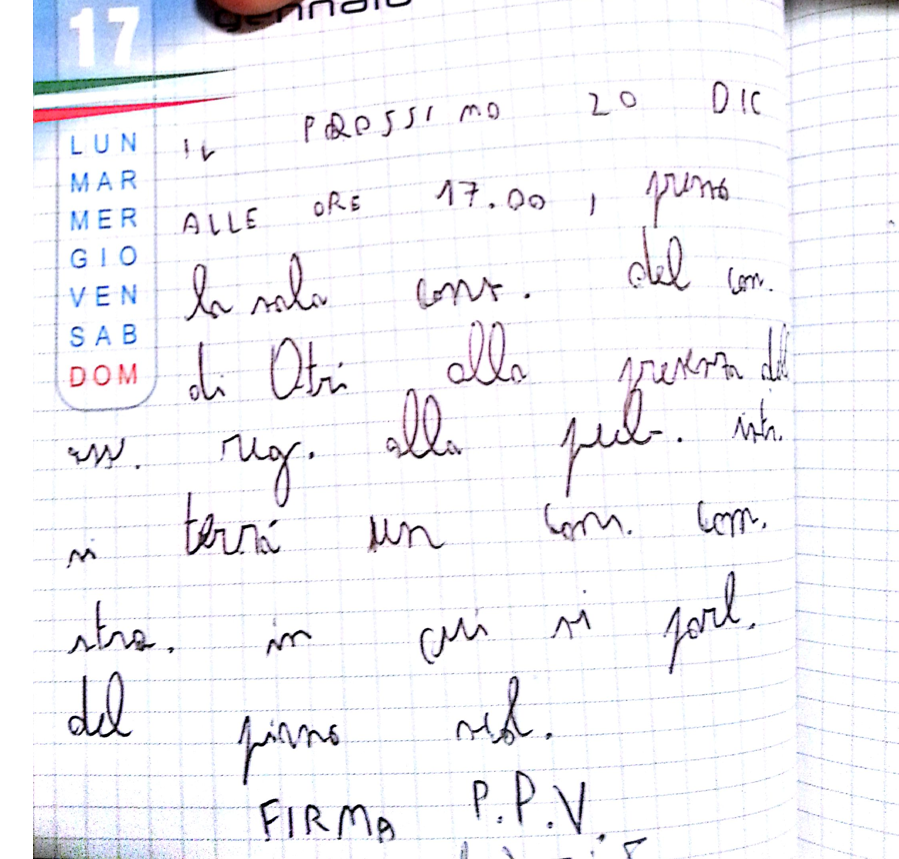 17 gennaio
LUN
MAR
MER
GIO
VEN
SAB
DOM
IL PROSSIMO 20 DIC
ALLE ORE 17.00, presso
la sala cons. del com.
di Otri alla presenza del
ass. reg. alla pub. istr.
si terrà un cons. com.
stra. in cui si parl.
del piano
FIRMA P.P.V.